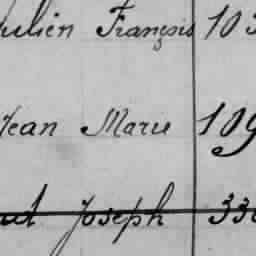 Julien François 103
Jean Marie 109
Joseph 33